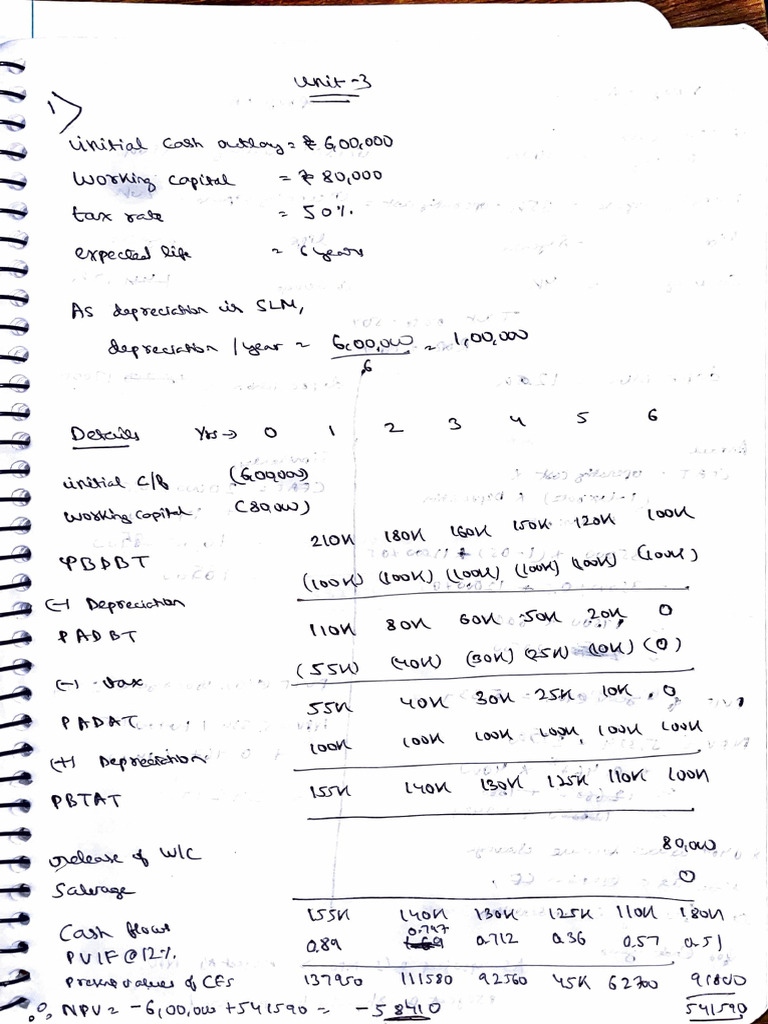 Unit-3
1)
initial cash outlay = ₹ 6,00,000
working capital = ₹ 80,000
tax rate = 50%.
expected life = 6 years
As depreciation is SLM,
depreciation / year = 6,00,000 / 6 = 1,00,000
Details Yrs → 0 1 2 3 4 5 6
initial C/B (600000)
working capital (80,000)
PBDBT 210K 180K 160K 150K 120K 100K
(-) Depreciation (100K) (100K) (100K) (100K) (100K) (100K)
PADBT 110K 80K 60K 50K 20K 0
(-) tax (55K) (40K) (30K) (25K) (10K) (0)
PADAT 55K 40K 30K 25K 10K 0
(+) Depreciation 100K 100K 100K 100K 100K 100K
PBTAT 155K 140K 130K 125K 110K 100K
release of W/C 80,000
Salvage 0
Cash flows 155K 140K 130K 125K 110K 180K
PVIF @ 12% 0.89 0.797 0.712 0.36 0.57 0.51
Present values of CFs 137950 111580 92560 45K 62700 91800
∴ NPV = -6,00,000 + 541590 = -58410 541590